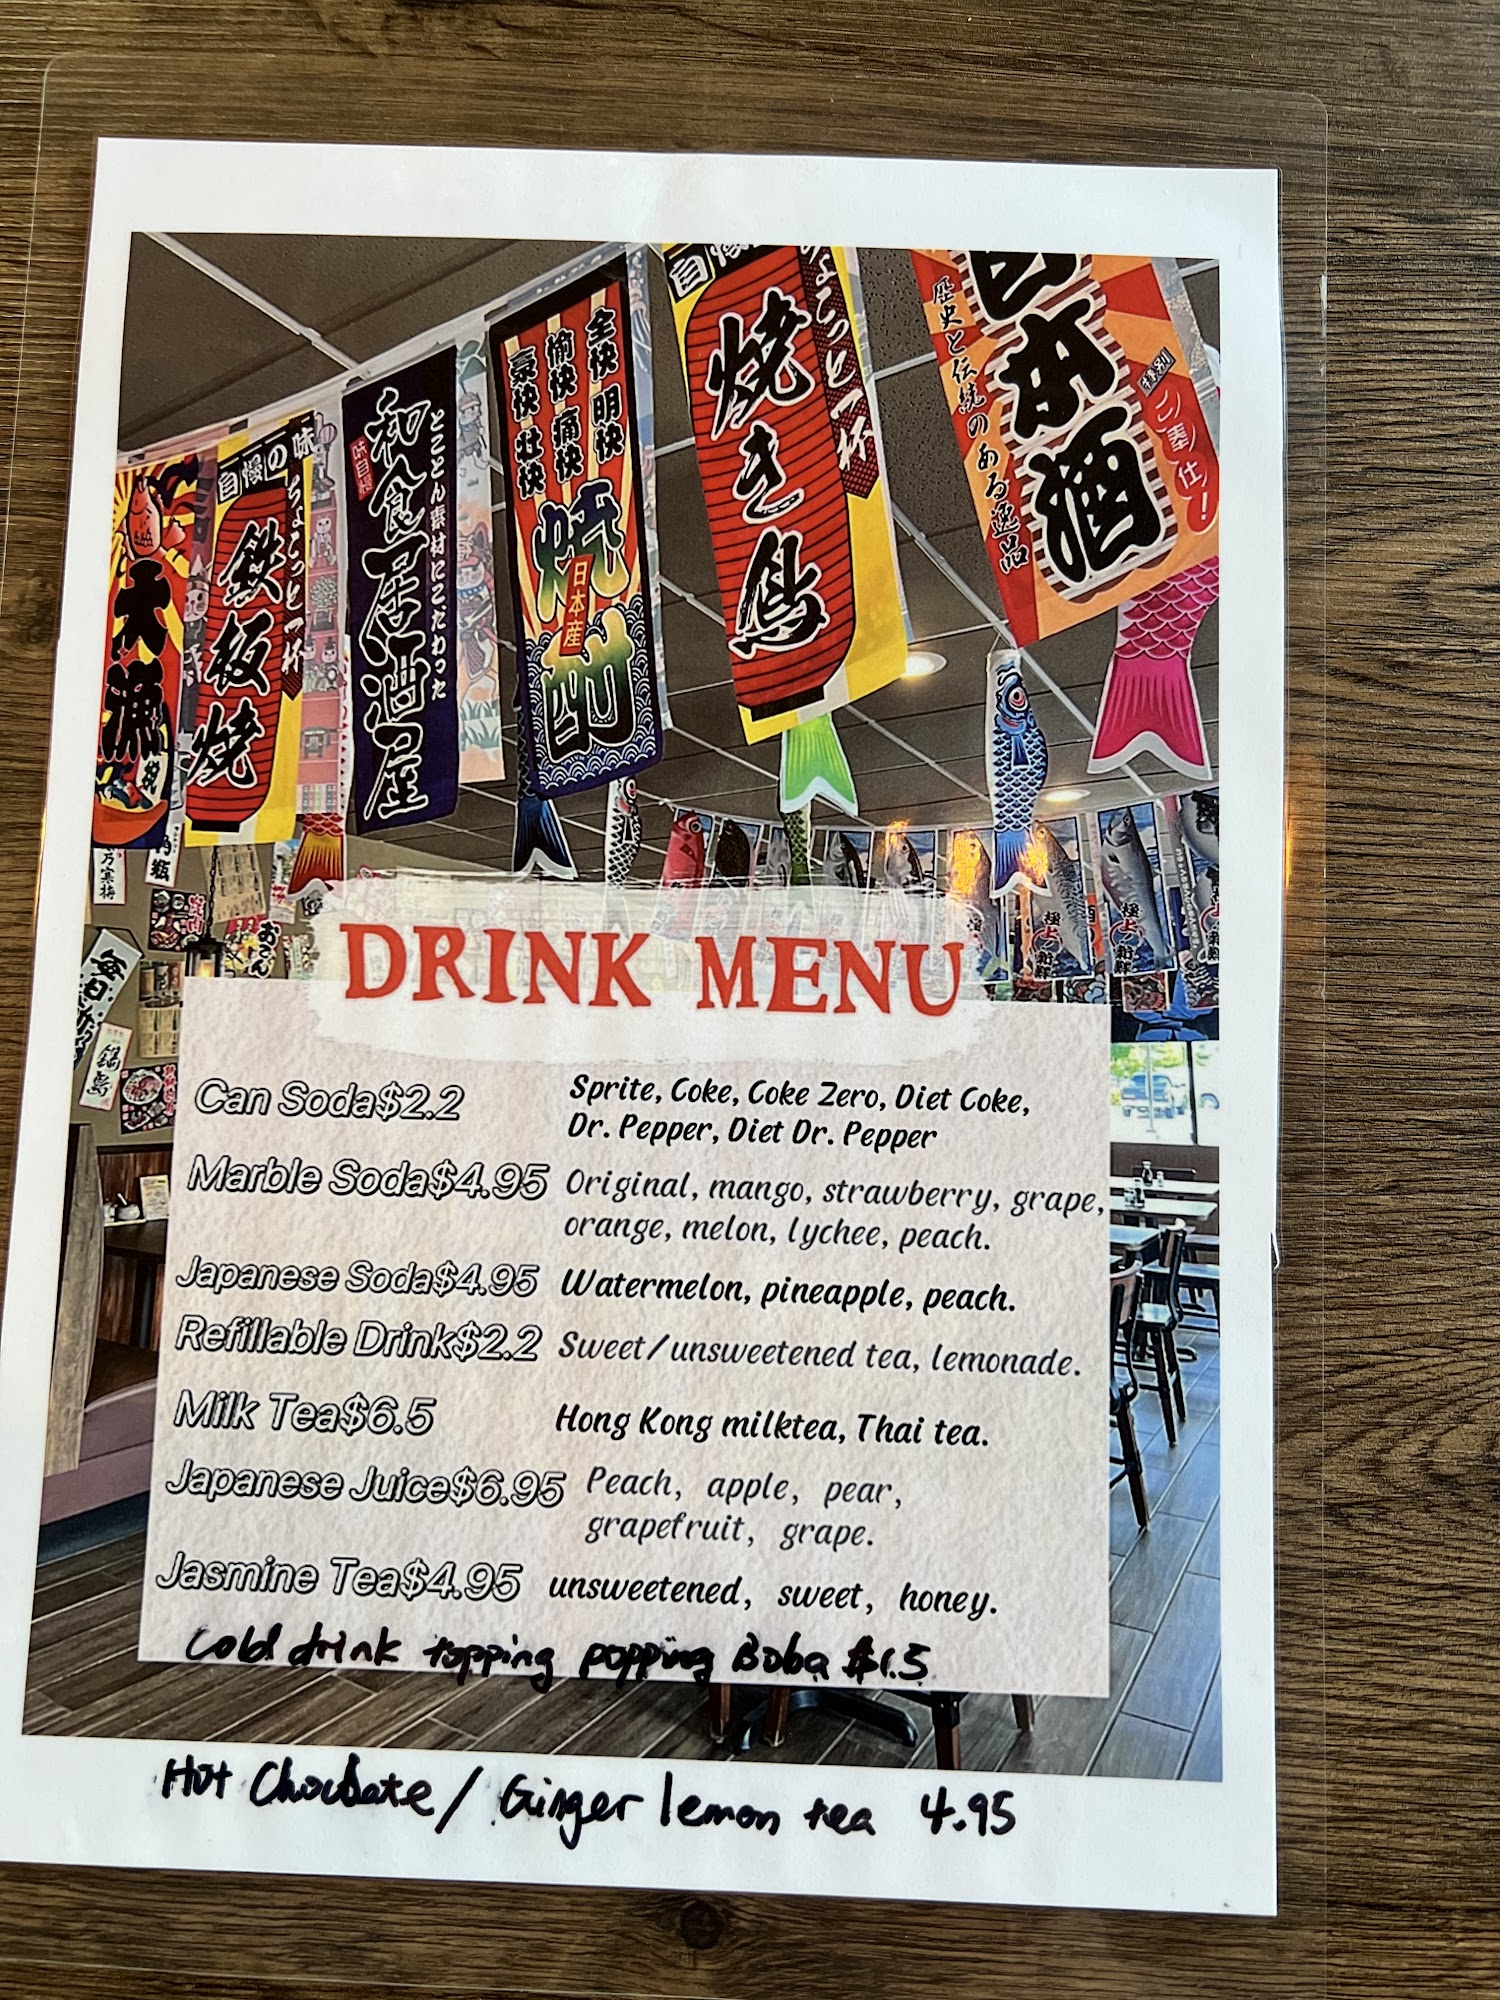 大漁
自慢の味
ちょこっと一杯
鉄板焼
味自慢
和食居酒屋
とことん素材にこだわった
全快 明快
愉快 痛快
豪快 壮快
焼酎
日本産
自慢
ちょこっと一杯
焼き鳥
歴史と伝統のある逸品
日本酒
特別
ご奉仕!
DRINK MENU
Can Soda$2.2 Sprite, Coke, Coke Zero, Diet Coke,
Dr. Pepper, Diet Dr. Pepper
Marble Soda$4.95 Original, mango, strawberry, grape,
orange, melon, lychee, peach.
Japanese Soda$4.95 Watermelon, pineapple, peach.
Refillable Drink$2.2 Sweet/unsweetened tea, lemonade.
Milk Tea$6.5 Hong Kong milktea, Thai tea.
Japanese Juice$6.95 Peach, apple, pear,
grapefruit, grape.
Jasmine Tea$4.95 unsweetened, sweet, honey.
Cold drink topping popping Boba $1.5
Hot Chocolate / Ginger lemon tea 4.95